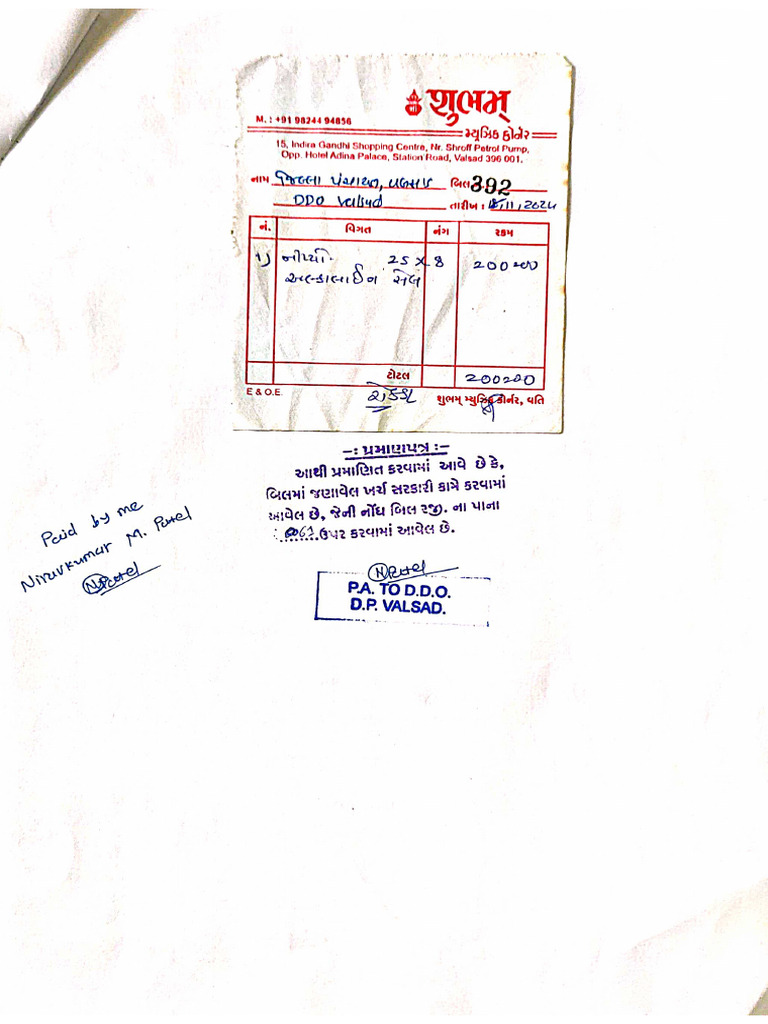 શુભમ્
M. : +91 98244 94856
મ્યુઝિક કોર્નર
15, Indira Gandhi Shopping Centre, Nr. Shroff Petrol Pump,
Opp. Hotel Adina Palace, Station Road, Valsad 396 001.
નામ જિલ્લા પંચાયત, વલસાડ બિલ 392
DDO Valsad તારીખ : 11, 2024
નં. વિગત નંગ રકમ
૧) 25 x 8 200=00
અલ્કાલાઈન સેલ
ટોટલ 200=00
E & O.E. રોકડા શુભમ્ મ્યુઝિક કોર્નર, વતિ
-: પ્રમાણપત્ર :-
આથી પ્રમાણિત કરવામાં આવે છે કે,
બિલમાં જણાવેલ ખર્ચ સરકારી કામે કરવામાં
આવેલ છે, જેની નોંધ બિલ રજી. ના પાના
ઉપર કરવામાં આવેલ છે.
Paid by me
Niruvkumar M. Patel
NPatel
NPatel
P.A. TO D.D.O.
D.P. VALSAD.